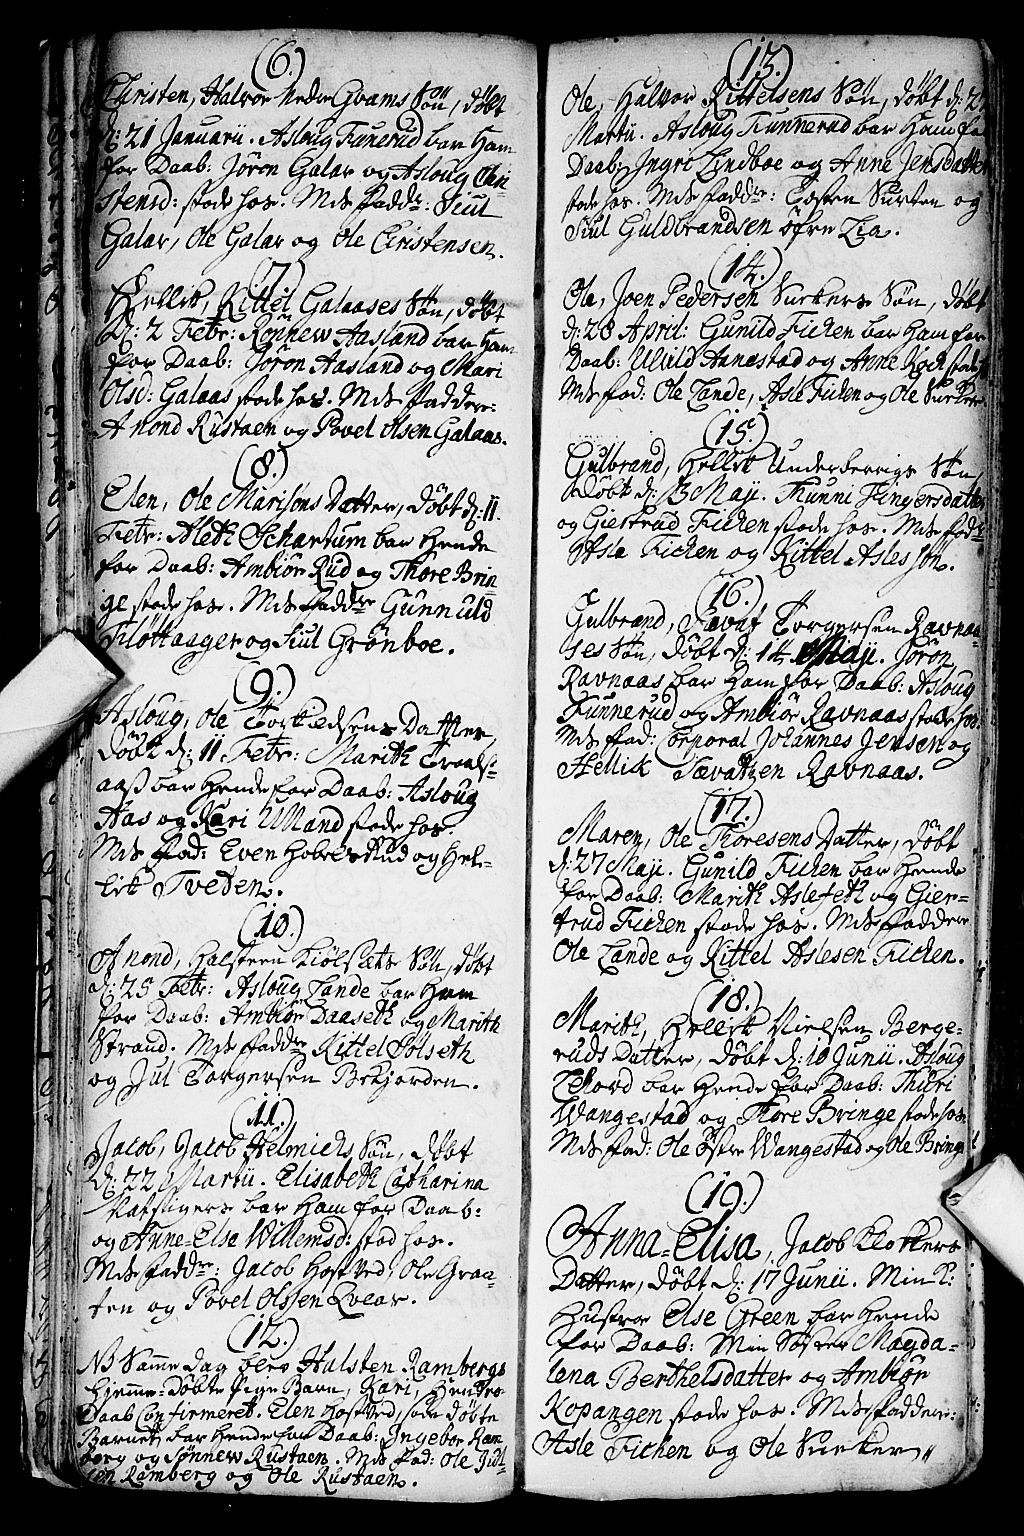 (6.)
Christen, Halvor Nedre Gvams Søn, døbt
d: 21 Januarii. Asloug Funerud bar Ham
for Daab: Jøron Galar og Asloug Chri
stensd: stode hos. Mds fadd: Siul
Galar, Ole Galar og Ole Christensen.
(7.)
Hellik, Kittel Galaases Søn, døbt
d: 2 Febr: Rønnew Aasland bar Ham
for Daab: Jøron Aasland og Mari
Olsd: Galaas stode hos. Mds Faddere:
Anond Rustaen og Povel Olsen Galaas.
(8.)
Elen, Ole Marisøns Datter, døbt d: 11.
Febr: Aleth Schartum bar Hende
for Daab: Ambiør Rud og Thore Brin
ge stode hos. Mds fadd Gunnuld
Flottaager og Siul Grønboe.
(9.)
Asloug, Ole Torkiedsens Datter,
døbt d: 11 Febr: Marith Traals-
aaß bar Hende for Daab: Asloug
Aas og Kari Ulland stode hos.
Mds fad: Even Hobersrud og Hel-
lik Tveten.
(10.)
Anond, Halsteen Kiølsets Søn, døbt
d: 25 Febr: Asloug Lande bar Ham
for Daab: Ambiør Daaseth og Marith
Strand. Mds fadd Kittel Solseth
og Jul Torgersen Bekjorden.
(11.)
Jacob, Jacob Helmichs Søn, døbt
d: 22 Martii. Elisabeth Catharina
bar Ham for Daab:
og Anne-Else Willemsd: stod hos.
Mds fadd: Jacob Hostved, Ole Graa-
ten og Povel Olssen Lvear.
(12.)
NB Samme dag blev Halsten Rambergs
Hjemme-døbte Pige Barn, Kari, hendes
Daab Confirmeret. Elen Hostved, som døbte
Barnet, bar Hende for Daab: Ingebor Ram
berg og Sønnew Rustaen. Mds fad: Ole Jul
sen Ramberg og Ole Rustaen.
(13.)
Ole, Halvor Kittelsens Søn, døbt d: 2
Martii. Asloug Funnerud bar Ham for
Daab: Ingri Lindboe og Anne Jensdatter
stode hos. Mds fadd: Tosten Surten og
Siul Guldbrandsen øfre Lia.
(14.)
Ole, Joen Pedersen Surkers Søn, døbt
d: 28 April: Gunild Fichen bar Ham for
Daab: Ulvild Annestad og Anne Kock stode
Mds fad: Ole Lande, Asle Fichen og Ole Surker
(15.)
Gulbrand, Hellik Underberrigs Søn,
døbt d: 13 Maji. Thurmi Fingersdatter
og Giertrud Fichen stode hos. Mds fadd
Asle Fichen og Kittel Asles søn.
(16.)
Gulbrand, Tævat Torgersen Ravnaa-
ses Søn, døbt d: 14 Maji. Jøron
Ravnaas bar Ham for Daab: Asloug
Funnerud og Ambiør Ravnaas stode hos.
Mds fad: Corporal Johannes Jensen og
Hellik Tævatsen Ravnaas.
(17.)
Maren, Ole Thoresens Datter, døbt
d: 27 Maji. Gunild Fichen bar Hende
for Daab: Marith Aslefeth og Gier-
trud Fichen stode hos. Mds faddere
Ole Lande og Kittel Aslesen Fichen.
(18.)
Marith, Hellik Nielsen Berge-
ruds Datter, døbt d: 10 Junii. Asloug
Thord bar Hende for Daab: Thuri
Wangestad og Thore Bringe stode hos.
Mds fad: Ole østre Wangestad og Ole Bringe
(19.)
Anna-Elisa, Jacob Klokkers
Datter, døbt d: 17 Junii. Min K:
Hustroe Else Green bar Hende
for Daab: Min Søster Magda-
lena Berthelsdatter og Ambiør
Kopangen stode hos. Mds faddere:
Asle Fichen og Ole Surker